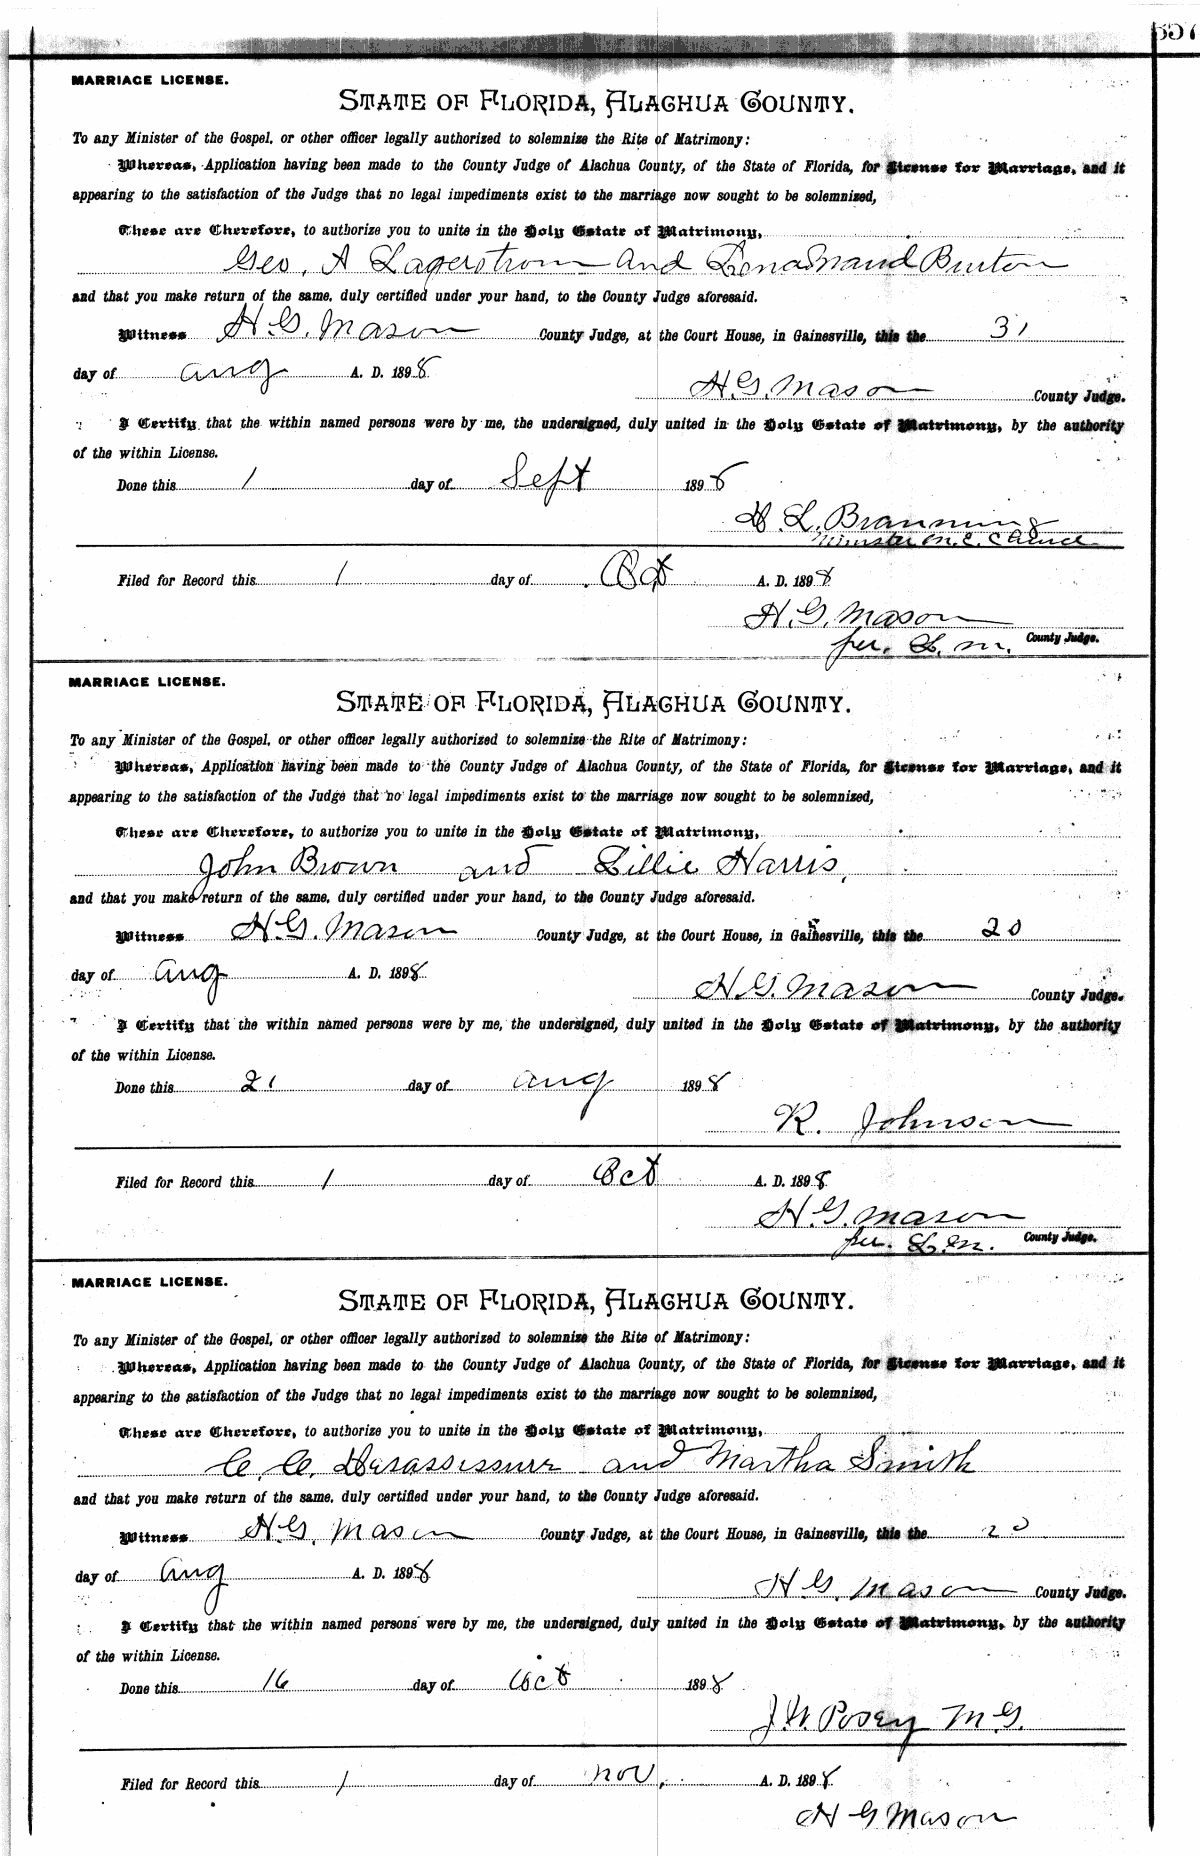 357
MARRIAGE LICENSE.
STATE OF FLORIDA, ALACHUA COUNTY.
To any Minister of the Gospel, or other officer legally authorized to solemnize the Rite of Matrimony:
Whereas, Application having been made to the County Judge of Alachua County, of the State of Florida, for License for Marriage, and it
appearing to the satisfaction of the Judge that no legal impediments exist to the marriage now sought to be solemnized,
These are Therefore, to authorize you to unite in the Holy Estate of Matrimony,
Geo. A Lagerstrom and Lena Maud Burton
and that you make return of the same, duly certified under your hand, to the County Judge aforesaid.
Witness H. G. Mason County Judge, at the Court House, in Gainesville, this the 31
day of Aug A. D. 1898
H. G. Mason County Judge.
I Certify that the within named persons were by me, the undersigned, duly united in the Holy Estate of Matrimony, by the authority
of the within License.
Done this 1 day of Sept 1898
L. Branning
Minister M. E. Church
Filed for Record this 1 day of Oct A. D. 1898
H. G. Mason
per. L. M. County Judge.
MARRIAGE LICENSE.
STATE OF FLORIDA, ALACHUA COUNTY.
To any Minister of the Gospel, or other officer legally authorized to solemnize the Rite of Matrimony:
Whereas, Application having been made to the County Judge of Alachua County, of the State of Florida, for License for Marriage, and it
appearing to the satisfaction of the Judge that no legal impediments exist to the marriage now sought to be solemnized,
These are Therefore, to authorize you to unite in the Holy Estate of Matrimony,
John Brown and Lillie Harris,
and that you make return of the same, duly certified under your hand, to the County Judge aforesaid.
Witness H. G. Mason County Judge, at the Court House, in Gainesville, this the 20
day of Aug A. D. 1898
H. G. Mason County Judge.
I Certify that the within named persons were by me, the undersigned, duly united in the Holy Estate of Matrimony, by the authority
of the within License.
Done this 21 day of Aug 1898
R. Johnson
Filed for Record this 1 day of Oct A. D. 1898
H. G. Mason
per. L. M. County Judge.
MARRIAGE LICENSE.
STATE OF FLORIDA, ALACHUA COUNTY.
To any Minister of the Gospel, or other officer legally authorized to solemnize the Rite of Matrimony:
Whereas, Application having been made to the County Judge of Alachua County, of the State of Florida, for License for Marriage, and it
appearing to the satisfaction of the Judge that no legal impediments exist to the marriage now sought to be solemnized,
These are Therefore, to authorize you to unite in the Holy Estate of Matrimony,
C. C. and Martha Smith
and that you make return of the same, duly certified under your hand, to the County Judge aforesaid.
Witness H. G. Mason County Judge, at the Court House, in Gainesville, this the 20
day of Aug A. D. 1898
H G. Mason County Judge.
I Certify that the within named persons were by me, the undersigned, duly united in the Holy Estate of Matrimony, by the authority
of the within License.
Done this 16 day of Oct 1898
J. W. Posey M. G.
Filed for Record this 1 day of Nov. A. D. 1898
H G Mason